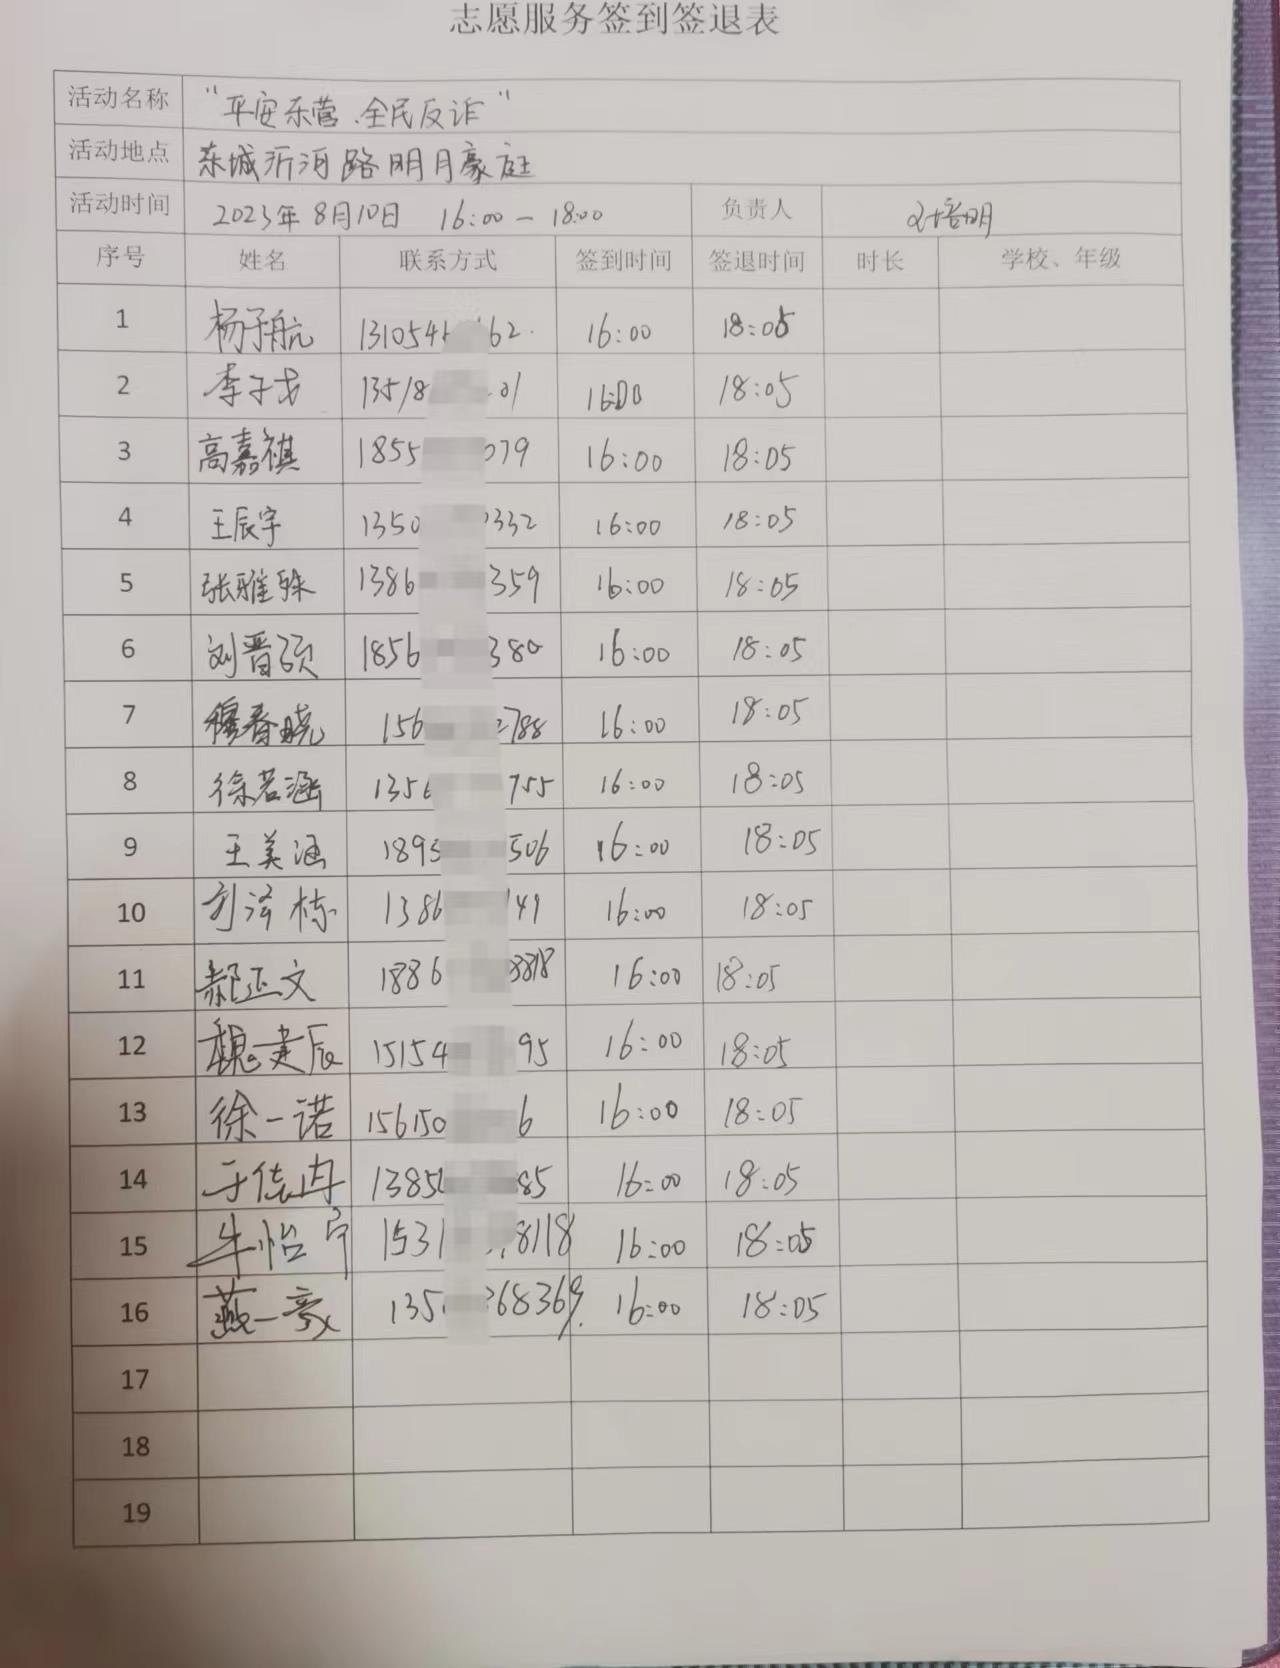 志愿服务签到签退表
活动名称 “平安东营、全民反诈”
活动地点 东城沂河路明月豪庭
活动时间 2023年8月10日 16:00-18:00 负责人
序号 姓名 联系方式 签到时间 签退时间 时长 学校、年级
1 杨子航 13105 62 16:00 18:05
2 李子戈 13518 01 16:00 18:05
3 高嘉祺 1855 079 16:00 18:05
4 王辰宇 1350 332 16:00 18:05
5 张雅姝 1386 359 16:00 18:05
6 刘晋硕 1856 380 16:00 18:05
7 穆春晓 156 788 16:00 18:05
8 徐若涵 135 755 16:00 18:05
9 王美涵 1895 506 16:00 18:05
10 刘泽栋 1386 49 16:00 18:05
11 郝正文 1886 8818 16:00 18:05
12 魏建辰 15154 95 16:00 18:05
13 徐一诺 156150 6 16:00 18:05
14 1385 85 16:00 18:05
15 牛怡宁 1531 8118 16:00 18:05
16 燕一豪 135 68369 16:00 18:05
17
18
19